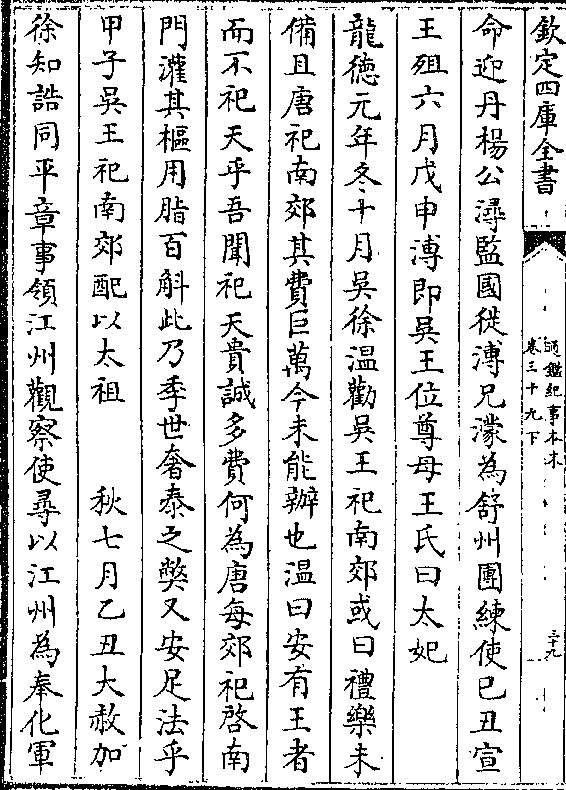 欽定四庫全書
通鑑紀事本末
卷三十九下
三十九
命迎丹楊公潯監國從溥兄濛為舒州團練使已丑宣
王殂六月戊申溥即吳王位尊母王氏曰太妃
龍徳元年冬十月吳徐温勸吳王祀南郊或曰禮樂未
備且唐祀南郊其費巨萬今未能辦也温曰安有王者
而不祀天乎吾聞祀天貴誠多費何為唐每郊祀啓南
門灌其樞用脂百斛此乃季世奢泰之弊又安足法乎
甲子吳王祀南郊配以太祖　秋七月乙丑大赦加
徐知誥同平章事領江州觀察使尋以江州為奉化軍